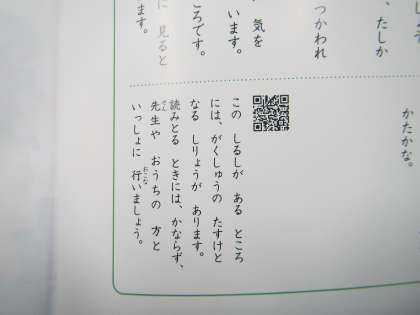 しょう
、たしか
つかわれ
、気を
います。
ころです。
に見ると
ます。
かたかな。
この しるしが ある ところ
には、がくしゅうの たすけと
なる しりょうが あります。
読みとる ときには、かならず、
先生や おうちの 方と
いっしょに 行いましょう。
せん
おこな